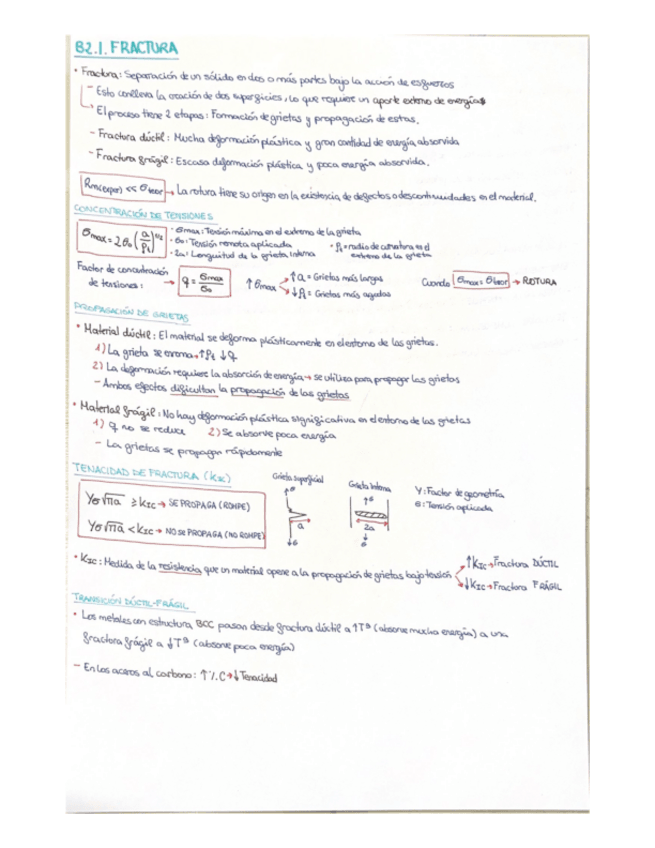 B2.1. FRACTURA
• Fractura: Separación de un sólido en dos o más partes bajo la acción de esfuerzos
- Esto conlleva la creación de dos superficies, lo que requiere un aporte externo de energías
El proceso tiene 2 etapas: Formación de grietas y propagación de estas.
- Fractura dúctil: Mucha deformación plástica y gran cantidad de energía absorvida
- Fractura frágil: Escasa deformación plástica y poca energía absorvida.
Rm(exper) << σteor → La rotura tiene su origen en la existencia de defectos o descontinuidades en el material.
CONCENTRACIÓN DE TENSIONES
σmax = 2σ₀ (a/ρt)^1/2
· σmax: Tensión máxima en el extremo de la grieta
· σ₀: Tensión remota aplicada
· 2a: Longuitud de la grieta interna
· ρt = radio de curvatura en el extremo de la grieta
Factor de concentración de tensiones: → q = σmax/σ₀
↑σmax ↑a = Grietas más largas
↓ρt = Grietas más agudas
Cuando σmax = σteor → ROTURA
PROPAGACIÓN DE GRIETAS
• Material dúctil: El material se deforma plásticamente en el entorno de las grietas.
1) La grieta se enroma → ↑ρt ↓q
2) La deformación requiere la absorción de energía → se utiliza para propagar las grietas
- Ambos efectos dificultan la propagación de las grietas
• Material frágil: No hay deformación plástica significativa en el entorno de las grietas
1) q no se reduce 2) Se absorve poca energía
- La grietas se propagan rápidamente
TENACIDAD DE FRACTURA (KIC)
Yσ√πa ≥ KIC → SE PROPAGA (ROMPE)
Yσ√πa < KIC → NO SE PROPAGA (NO ROMPE)
Grieta superficial
σ
a
σ
Grieta Interna
σ
2a
σ
Y: Factor de geometría
σ: Tensión aplicada
• KIC: Medida de la resistencia que un material opone a la propagación de grietas bajo tensión
↑KIC → Fractura DÚCTIL
↓KIC → Fractura FRÁGIL
TRANSICIÓN DÚCTIL-FRÁGIL
• Los metales con estructura BCC pasan desde fractura dúctil a ↑Tª (absorve mucha energía) a una
fractura frágil a ↓Tª (absorve poca energía)
- En los aceros al carbono: ↑%C → ↓Tenacidad